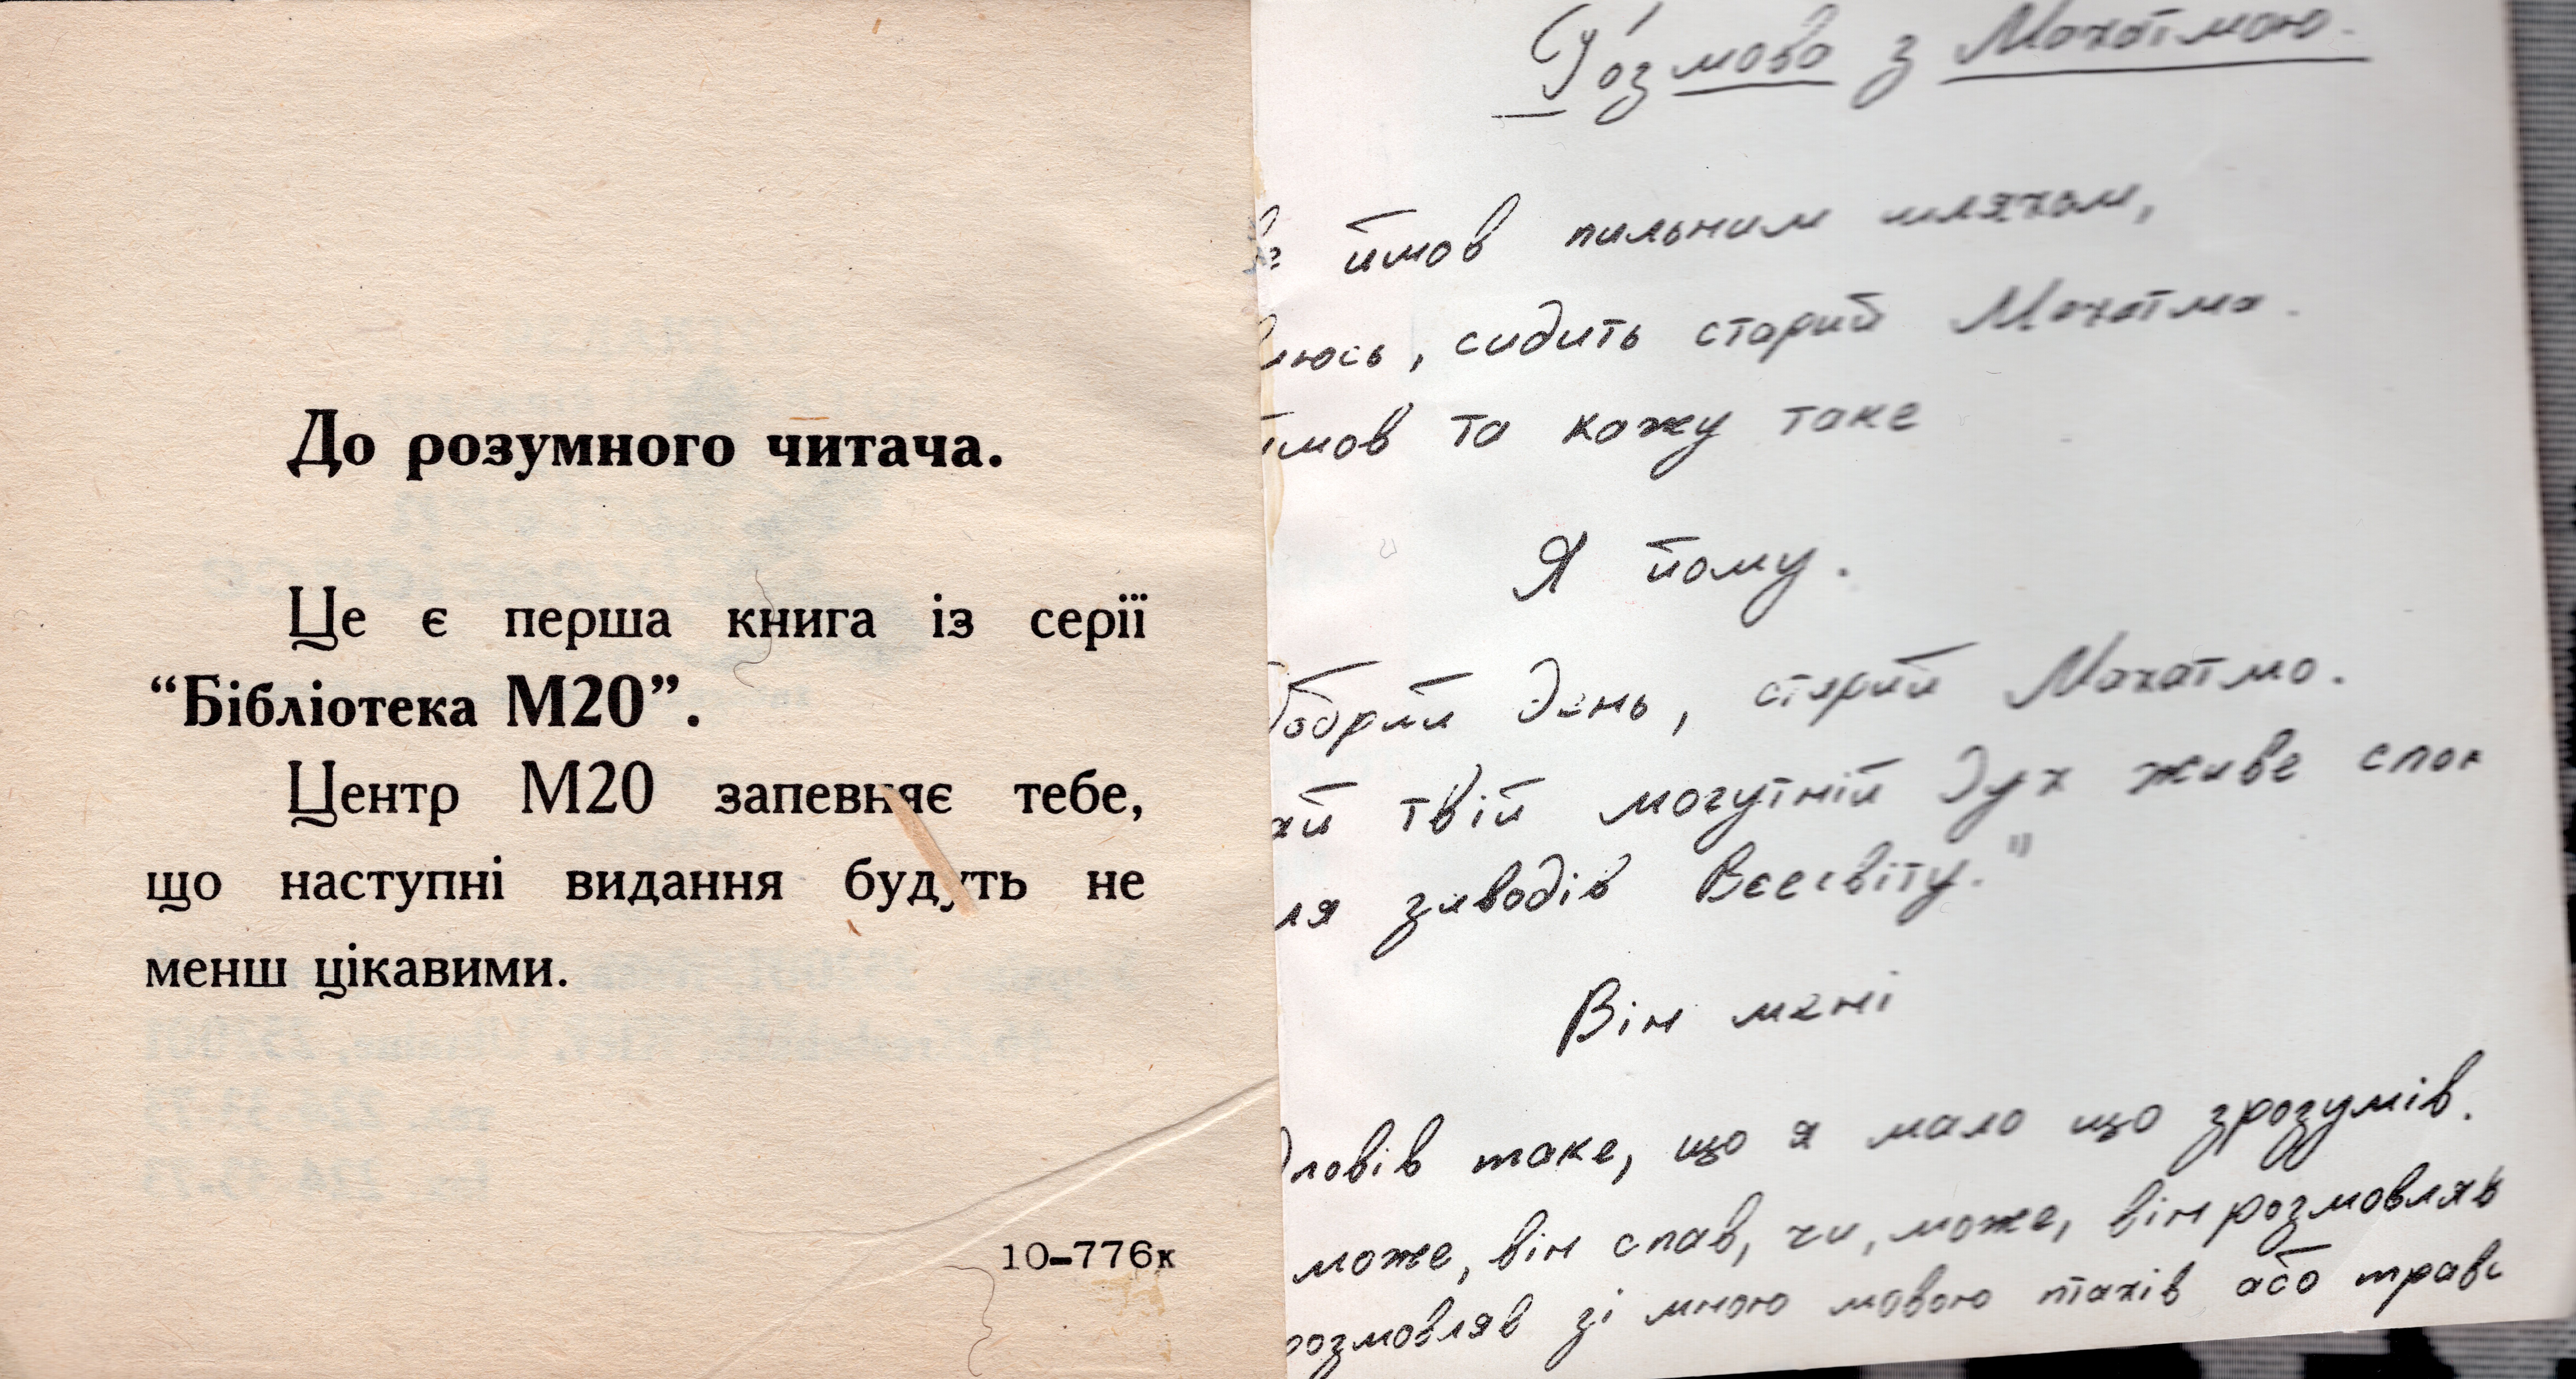 До розумного читача.
Це є перша книга із серії
“Бібліотека М20”.
Центр М20 запевняє тебе,
що наступні видання будуть не
менш цікавими.
10-776к
Розмова з Махатмою.
йшов пильним шляхом,
сидить старий Махатма.
та кажу таке
Я йому.
Добрий день, старий Махатмо.
твій могутній дух живе
заводів Всесвіту."
Він мені
таке, що я мало що зрозумів.
може, він спав, чи, може, він розмовляв
розмовляв зі мною мовою птахів або